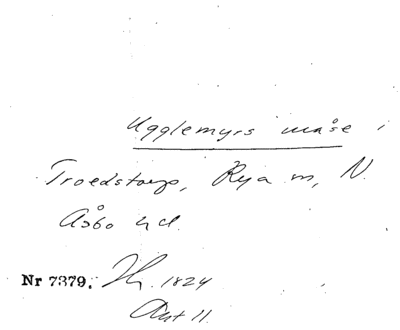 Ugglemyrs måse i
Troedstorp, Rya sn, N.
Åsbo hd.
Nr 7379. Th. 1824
Akt 11.